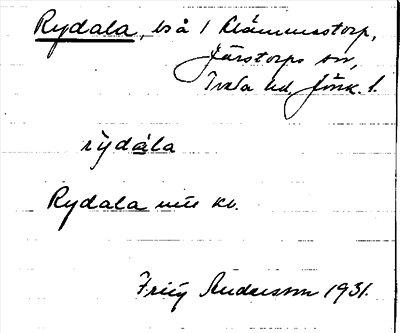 Rydala, bså 1 Klämmestorp,
Järstorps sn,
Tveta hd, Jönk. l.
rỳdála
Rydala
kv.
Andersson 1931.